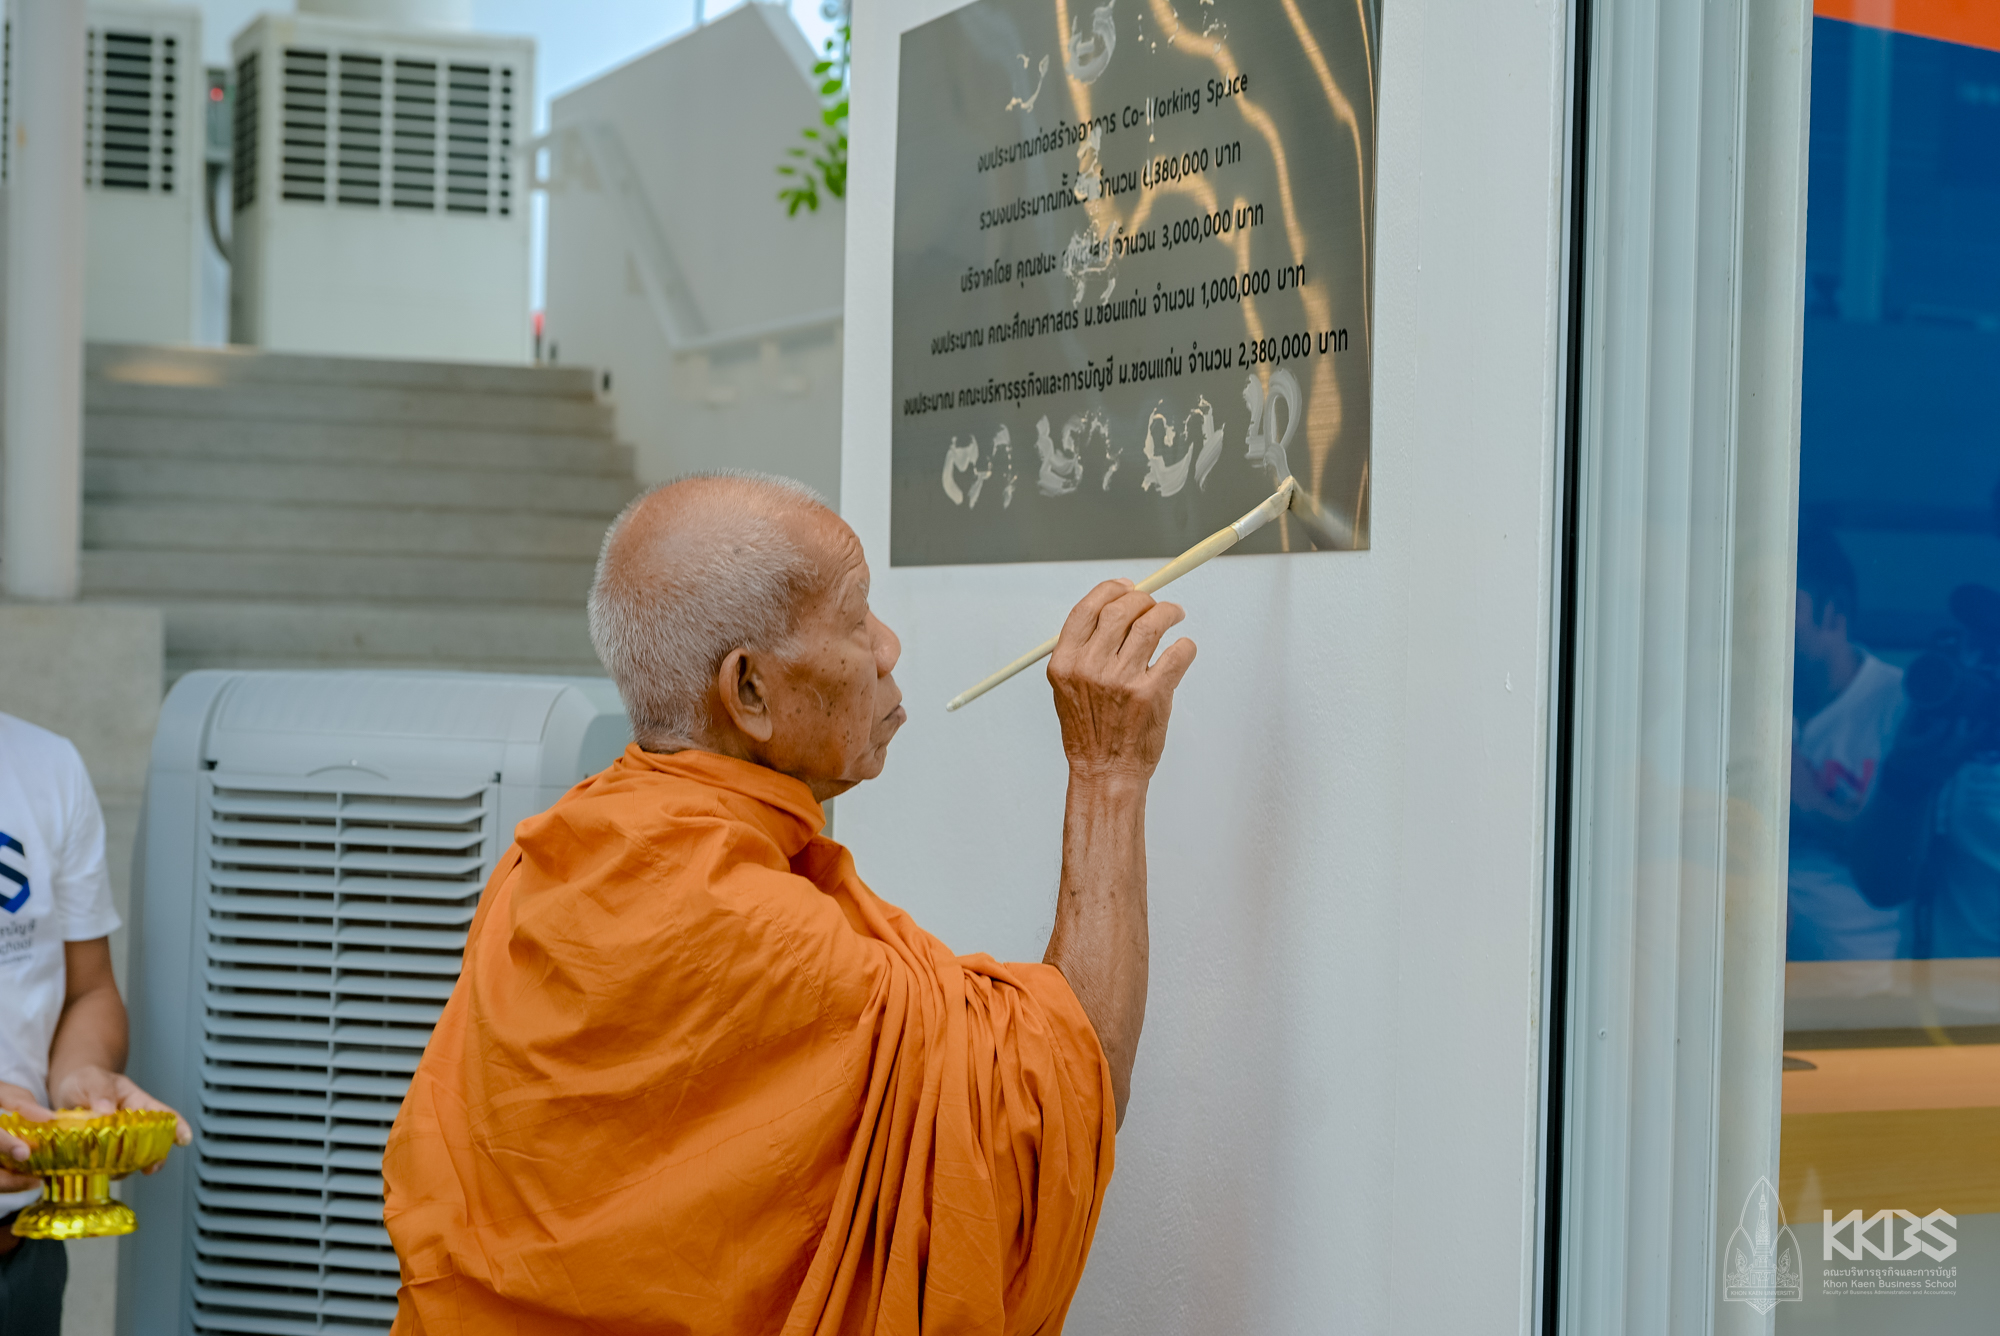 งบประมาณก่อสร้างอาคาร Co-Working Space
รวมงบประมาณทั้งสิ้น จำนวน 6,380,000 บาท
บริจาคโดย คุณชนะ จำนวน 3,000,000 บาท
งบประมาณ คณะศึกษาศาสตร์ ม.ขอนแก่น จำนวน 1,000,000 บาท
งบประมาณ คณะบริหารธุรกิจและการบัญชี ม.ขอนแก่น จำนวน 2,380,000 บาท
KKBS
คณะบริหารธุรกิจและการบัญชี
Khon Kaen Business School
Faculty of Business Administration and Accountancy
KHON KAEN UNIVERSITY